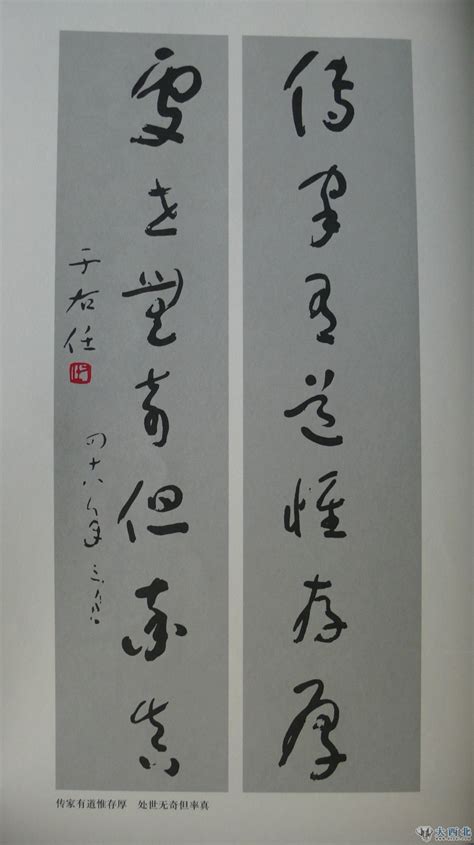 傳家有道惟存厚
處世無奇但率真
于右任
四十八年三月
传家有道惟存厚　处世无奇但率真
大西北